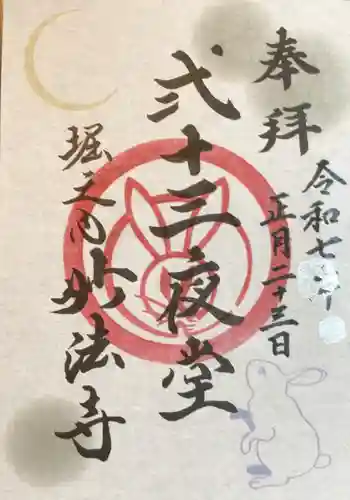 奉拝
令和七年
正月二十三日
弐十三夜堂
堀之内
妙法寺